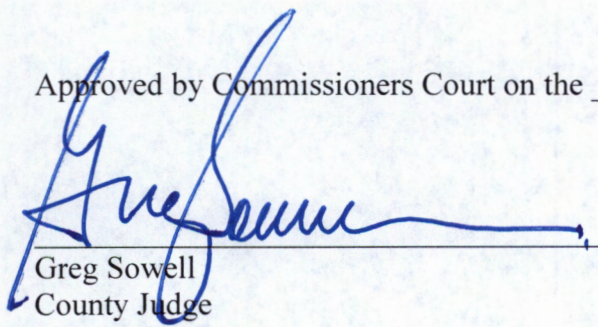 Approved by Commissioners Court on the _
Greg Sowell
Greg Sowell
County Judge